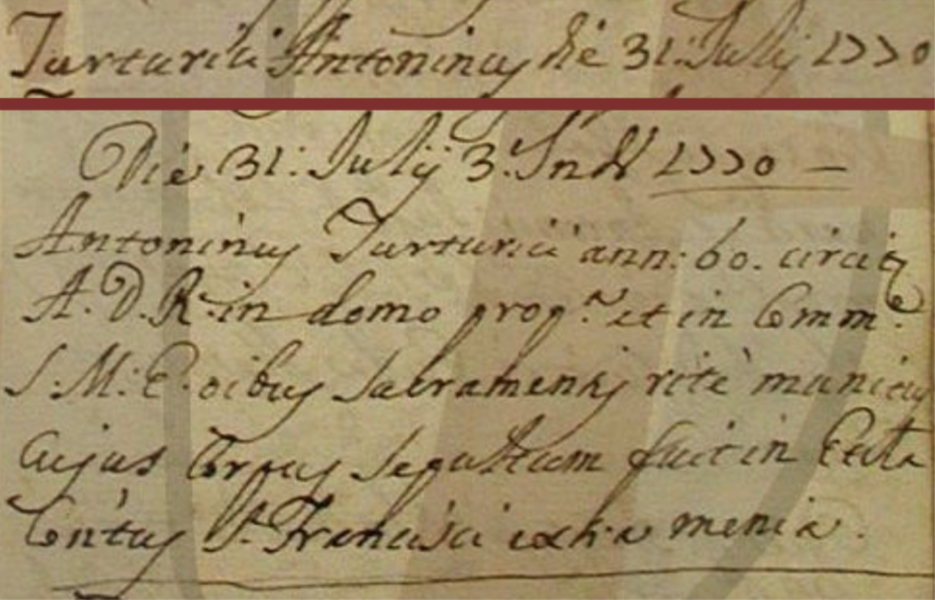 Turturici Antoninus die 31: Julij 1770
Die 31: Julij 3. Ind. 1770 —
Antoninus Turturici ann: 60. circitr
A. D. R. in domo propa. et in Comm.
S. M. E. oibus Sacramentis rite munitus
Cujus Corpus sepultum fuit in Eccla
Contus St. Francisci extra menia.